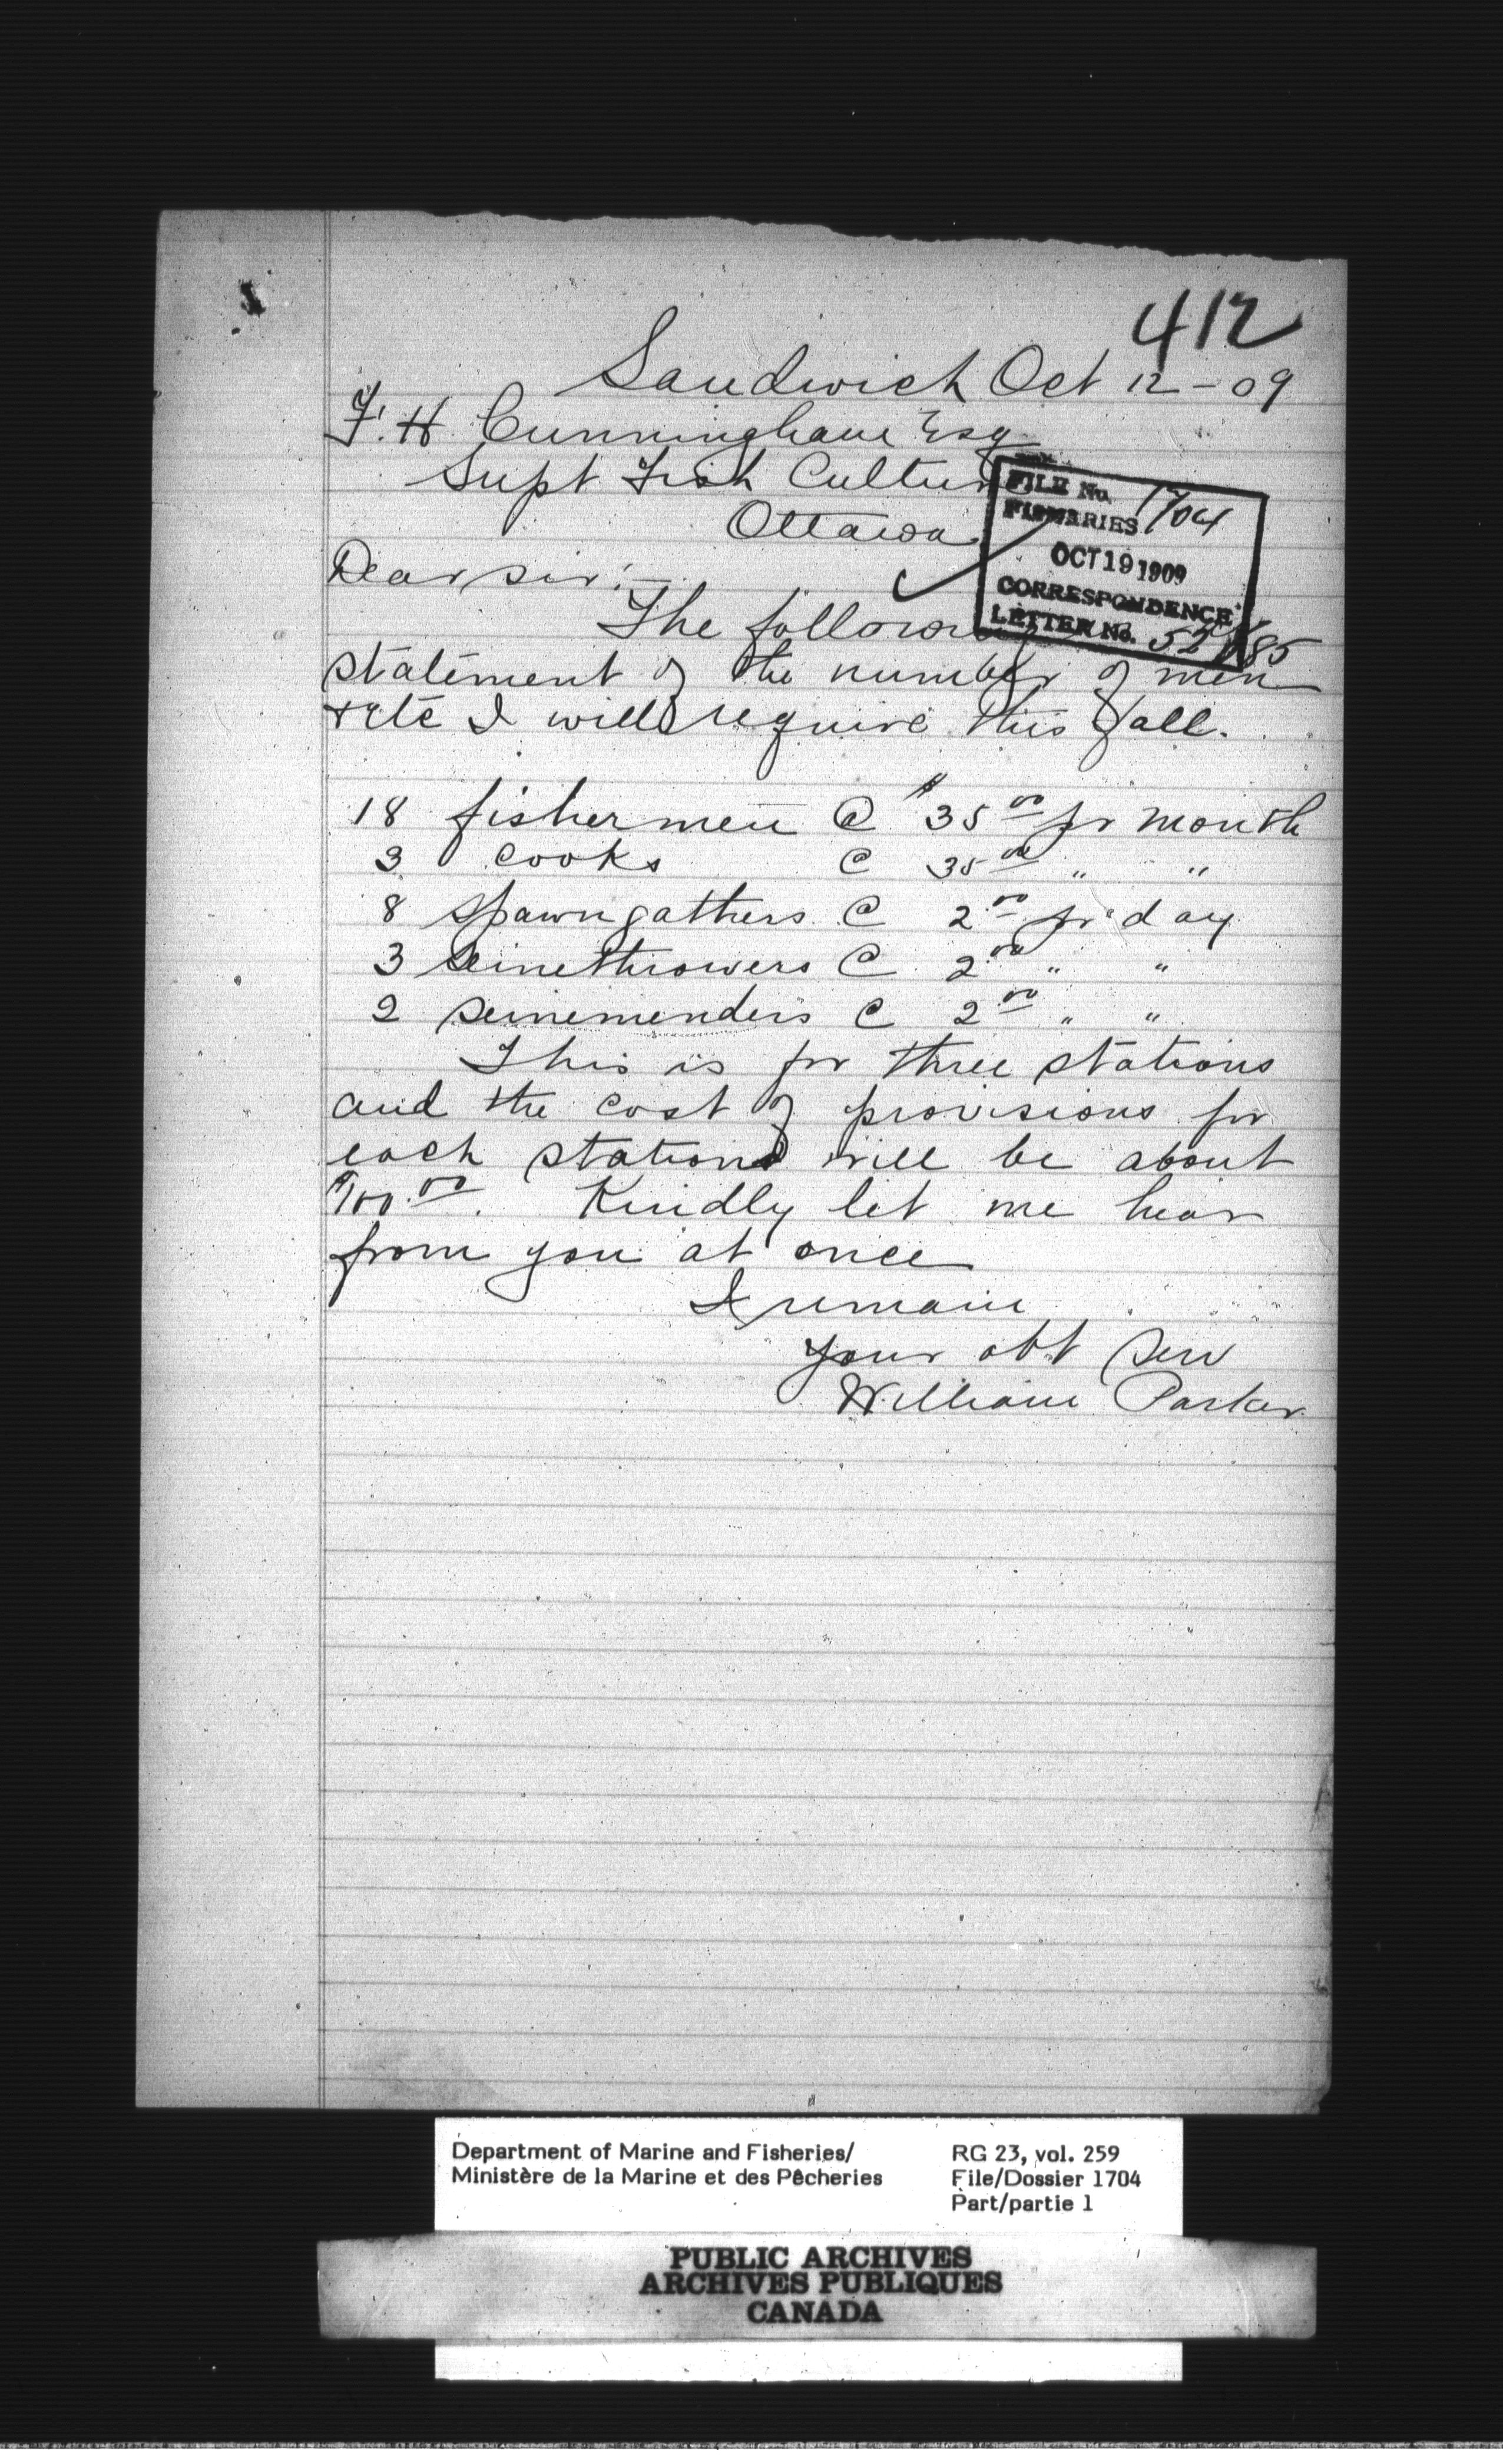 412
Sandwich Oct 12 - 09
F. H. Cunningham Esq
Supt Fish Culture
Ottawa.
FILE No. 1704
FISHERIES
OCT 19 1909
CORRESPONDENCE
LETTER No.
Dear sir:—
The following
statement of the number of men
+ etc I will require this fall.
18 fishermen @ $35.00 pr month
3 cooks @ 35.00 " "
8 spawngathers @ 2.00 pr day
3 seinethrowers @ 2.00 " "
2 seinemenders @ 2.00 " "
This is for three stations
and the cost of provisions for
each station will be about
$100.00. Kindly let me hear
from you at once
I remain
your obt serv
William Parker
Department of Marine and Fisheries/
Ministère de la Marine et des Pêcheries
RG 23, vol. 259
File/Dossier 1704
Part/partie 1
PUBLIC ARCHIVES
ARCHIVES PUBLIQUES
CANADA